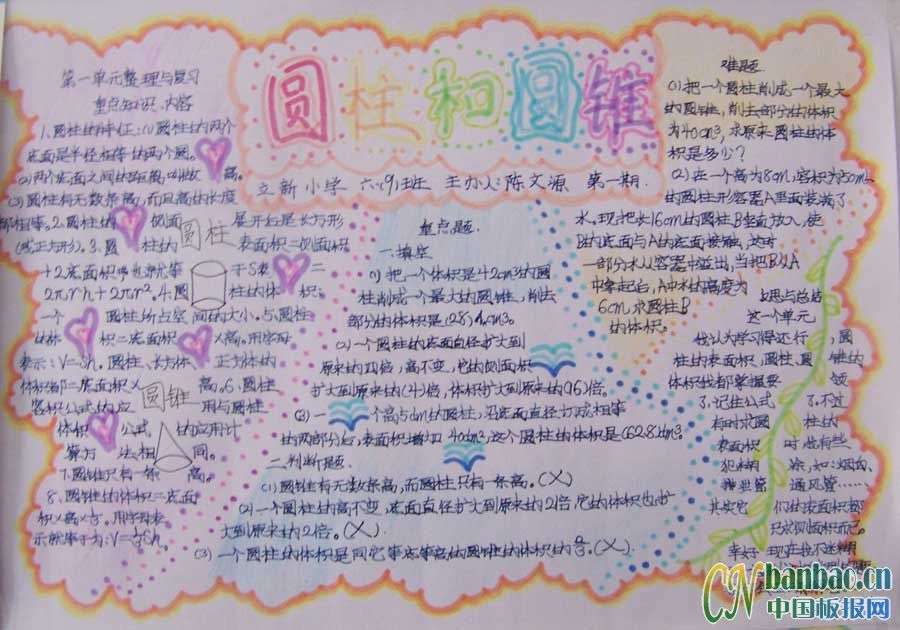 圆柱和圆锥
立新小学 六(9)班 主办人:陈文源 第一期.
第一单元整理与复习
重点知识.内容
1.圆柱的特征:(1)圆柱的两个
底面是半径相等的两个圆.
(2)两个底面之间的距离,叫做 高.
(3)圆柱有无数条高,而且高的长度
都相等.2.圆柱的 侧面 展开后是长方形
(或正方形).3.圆 柱的 圆柱 表面积=侧面积
+2底面积 等 于S表 =
2πrh+2πr².4.圆 柱的体 积:
一个 圆柱所占空 间的大小.5.圆柱
的体 积=底面积 ×高.用字母
表示:V=Sh.圆柱、长方体、正方体的
体积都=底面积× 高.6.圆柱
容积公式的应 圆锥 用与圆柱
体积 公式 的应用计
算方 法相 同.
7.圆锥只有一条 高.
8.圆锥的体积=底面
积×高×⅓.用字母表
示就等于为:V=⅓Sh.
重点题.
一.填空
(1)把一个体积是42cm³的圆
柱削成一个最大的圆锥,削去
部分的体积是(28)cm³.
(2)一个圆柱的底面直径扩大到
原来的4倍,高不变,它的侧面积
扩大到原来的(4)倍,体积扩大到原来的(16)倍.
(3)一 个高5dm的圆柱,沿底面直径切成相等
的两部分后,表面积增加40dm²,这个圆柱的体积是(62.8)dm³.
二.判断题.
(1)圆锥有无数条高,而圆柱只有一条高.(×)
(2)一个圆柱的高不变,底面直径扩大到原来的2倍,它的体积也扩
大到原来的2倍.(×).
(3)一个圆柱的体积是同它等底等高的圆锥的体积的.(×).
难题
(1)把一个圆柱削成一个最大
的圆锥,削去部分的体积
为40cm³,求原来圆柱的体
积是多少?
(2)在一个高为8cm,容积为50mL
的圆柱形容器A里面装满了
水.现把长16cm的圆柱B垂直放入,使
B的底面与A的底面接触,这时
一部分水从容器中溢出,当把B从A
中拿走后,A中水的高度为
6cm,求圆柱B
的体积.
反思与总结
这一个单元
我认为学习得还行,圆
柱的表面积、圆柱、圆 锥的
体积我都掌握要 领
了.记住公式 了.不过
有时求圆 柱的
表面积 时也有些
犯糊 涂,如:烟囱、
排思管 通风管……
其实它 们的表面积都
只求侧面积而已.
幸好 现在我不迷糊
CN banbao.cn
中国板报网